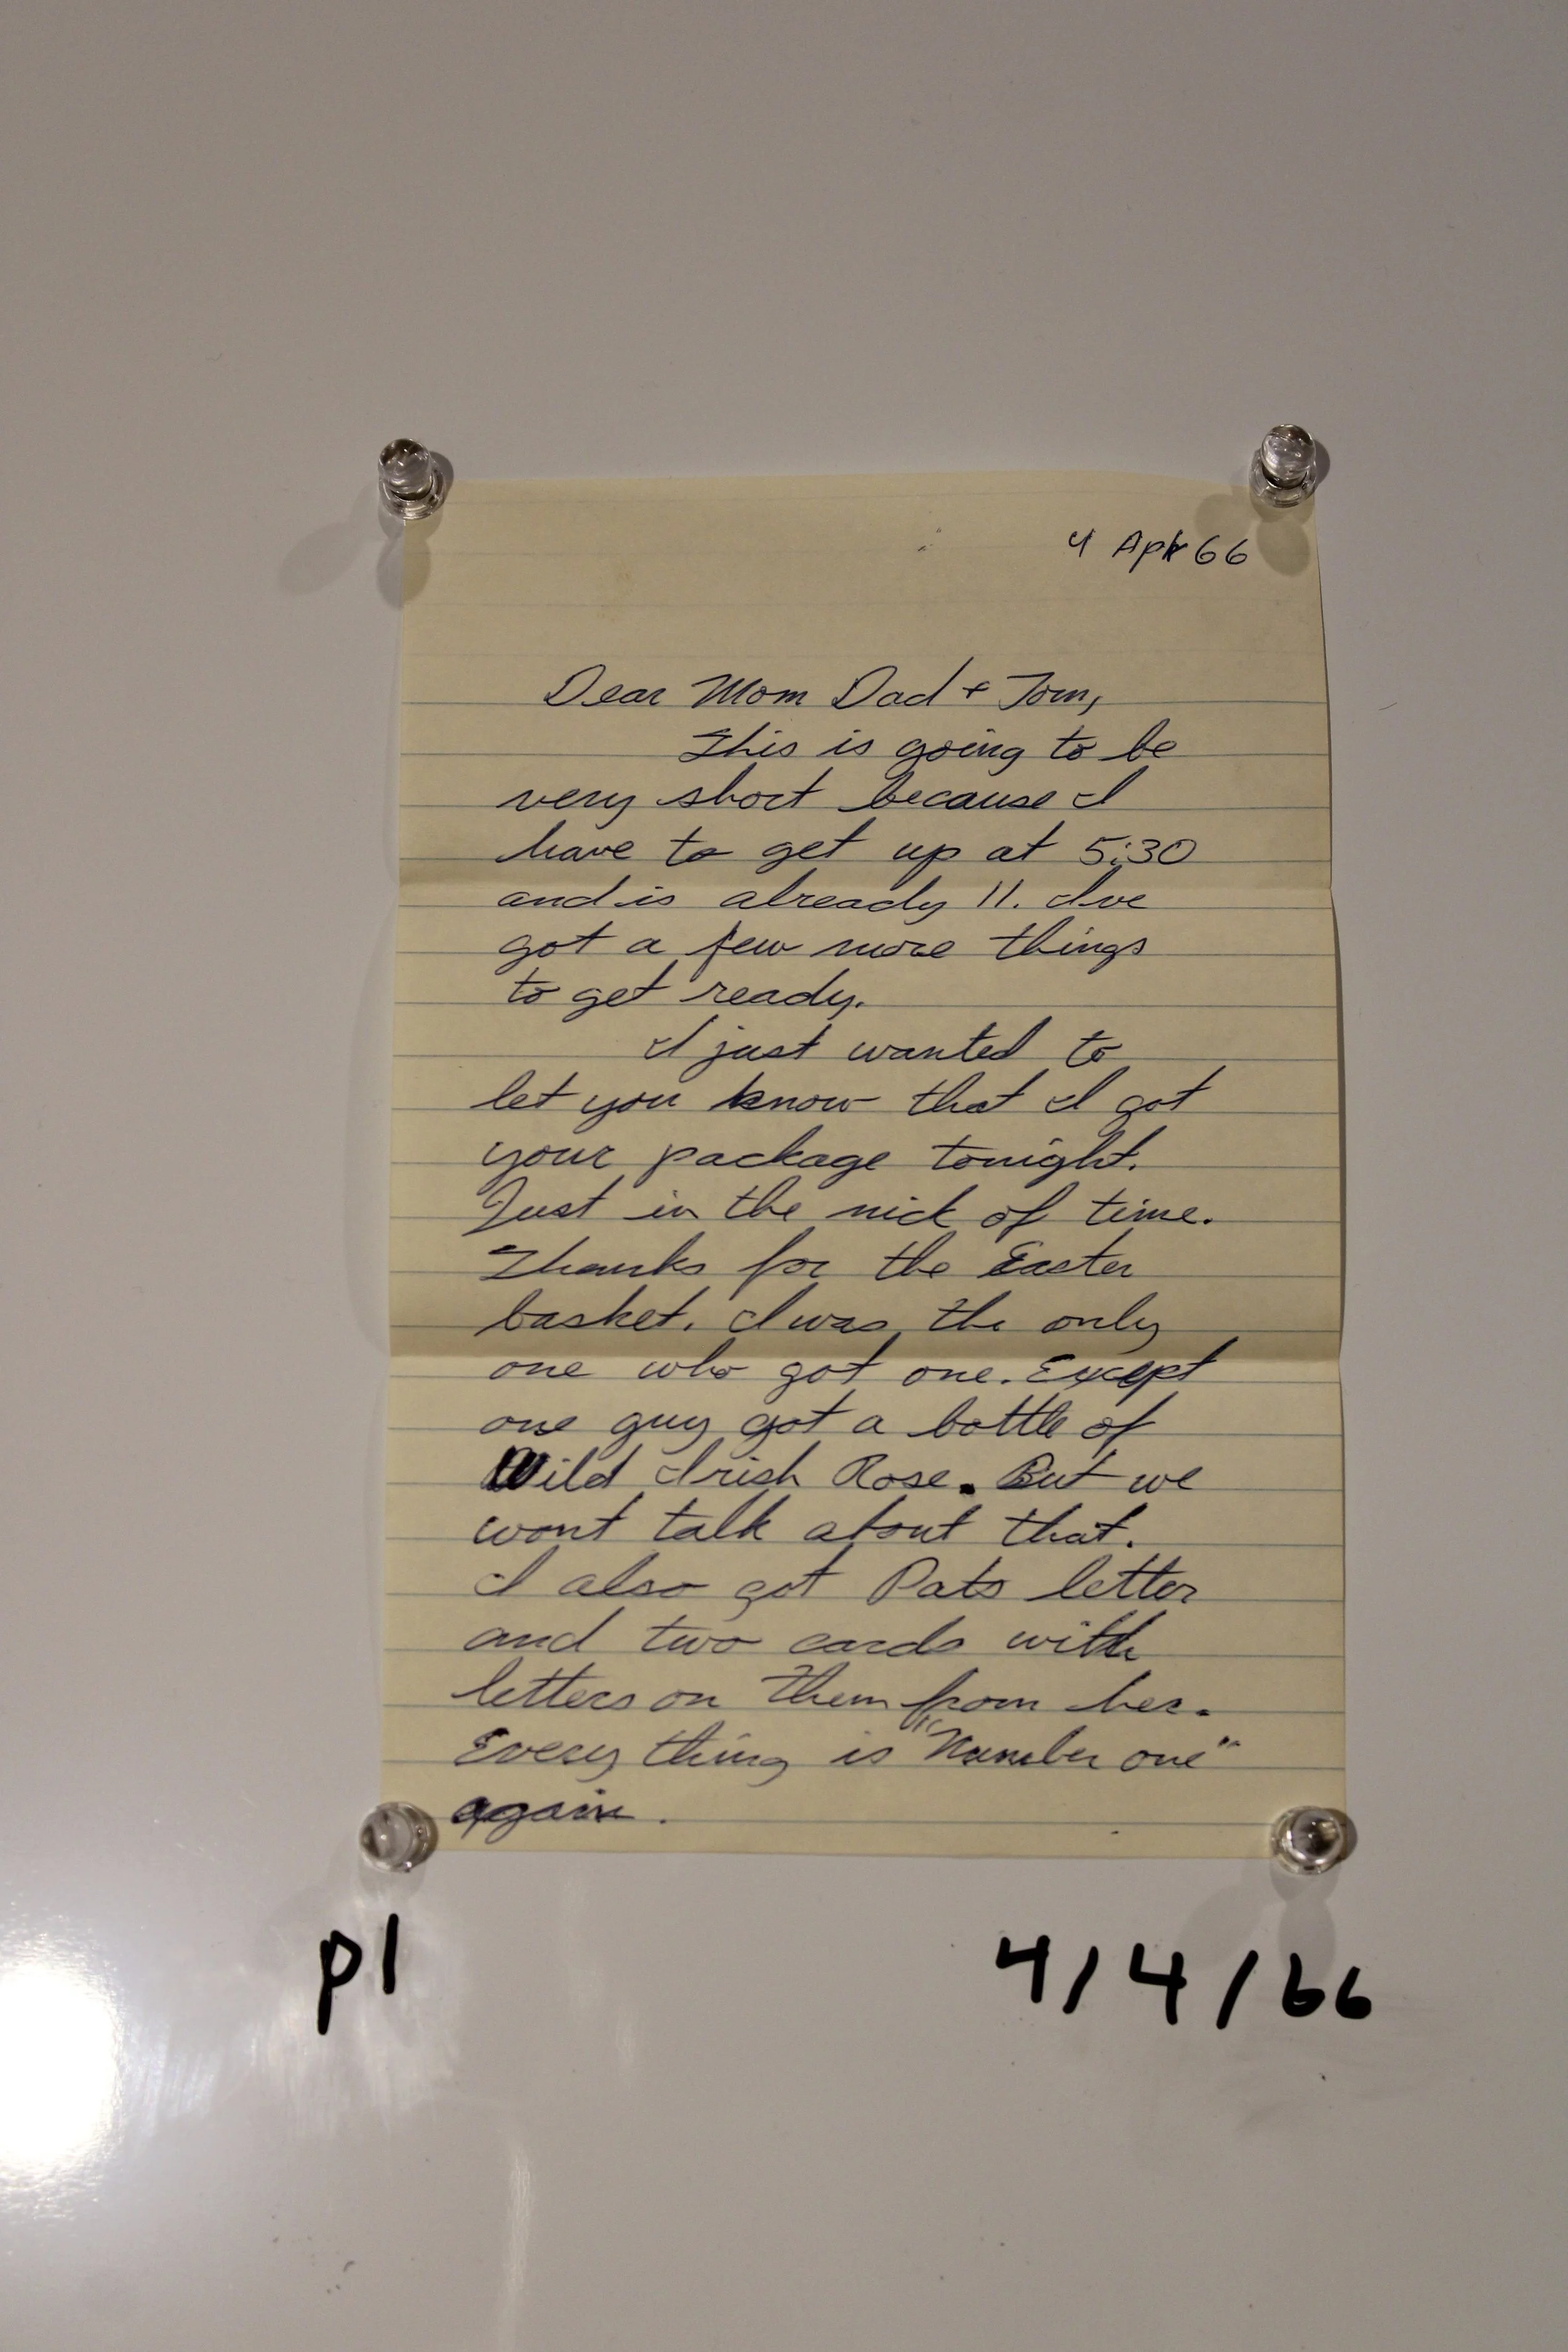 4 Apr 66
Dear Mom Dad + Tom,
This is going to be
very short because I
have to get up at 5:30
and is already 11. Ive
got a few more things
to get ready.
I just wanted to
let you know that I got
your package tonight.
Just in the nick of time.
Thanks for the Easter
basket. I was the only
one who got one. Except
one guy got a bottle of
Wild Irish Rose. But we
wont talk about that.
I also got Pats letter
and two cards with
letters on them from her.
Every thing is "Number one"
again.
p1 4/4/66